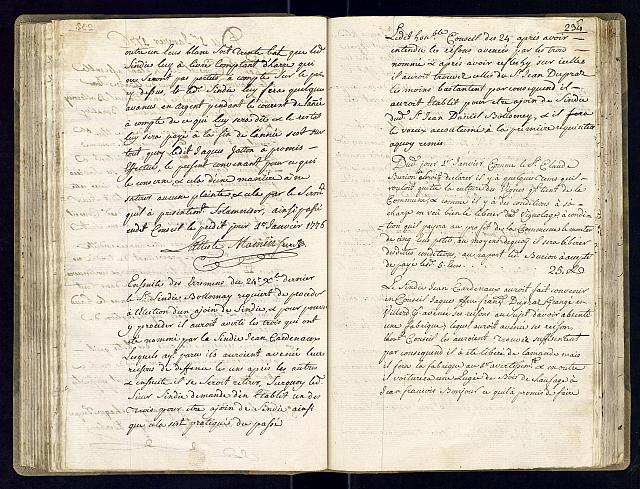 outre un leus blanc soit trente bat que led
Sindic luy a livré Comptant d'harge qui
que Seront pas portés a Compte Sur le prix
y desus, le led. Sindic luy fera quelque
avance en argent pendant le courent de lané
à compte de ce que luy sera dete & le restes
luy sera payé a la fin de lannée soit sur
tout quoy ledit Jaques Jatton a promis
Effectuer le present convenant pour ce qui
le concerne & cela d'une maniere a ne
aucune plainte & cela par le Serm.
qu'il a presentem. Solamnisez, ainsi passé
endt Conseil le predit jour 1er Janvier 1776
Ensuite des Erremens du 24e Xbre dernier
le Sr. Sindic Bolomay requiert de proceder
à l'Election d'un ajoin de Sindic, & pour pouvoir
y proceder il auroit averti les trois qui ont
été nommé par la Sindic Jean Cardenaux
Lesquels ayt. paru ils auroient avencé leurs
reisons de deffence les uns après les autres
& ensuite il se Seroit retirer, Surquoy led.
Sieur Sindic demande d'en Etablit un des
trois pour être ajoin de Sindic ainsi
que cela sest pratiqué du passé
234
Ledit honble Conseil des 24 après avoir
entendu les reisons avencés par les trois
nommé & après avoir reflechy sur icelles
il auroit trouvez celles du Sr. Jean Dupraz
les moins bastantent par consequend il
auroit Etablit pour être ajoin de Sindic
dud. Sr. Jean Daniel Bollomey, & il fera
le vaux accoutumé à la premiere requisition
aquoy remis
Dud. jour 1er Janvier Comme le Sr. Claude
Burion declarer il y a quelque tems qu'il
vouloit quitté la culture des Vignes qu'il tient de la
Commune & comme il y a des conditions à sa
charge on veu bien le liberer dud. Vignolage à condi
tion qu'il payera au profit de la Commune le montan
de cinq leus petits, au moyen dequoy il sera liberer
desdites conditions, au raport led. Burion à accepté
de payé lesd. 5 leus
25. L. 0
Le Sindic Jean Cardenaux auroit fait convenir
en Conseil Jaques feu Franç. Dupraz Grange en
Villard, & avencé ses reisons au sujet d'avoir absenté
une fabrique; lequel auroit avencé ses reison,
honr. Conseil les auroient trouvez suffisentent
par consequend il a été libéré de lamande mais
il fera la fabrique au 1er avertissemt. & en outre
il voiturera une Lugée de Bois de Sausage à
Jean francois Bonjour ce qu'il a promis de faire